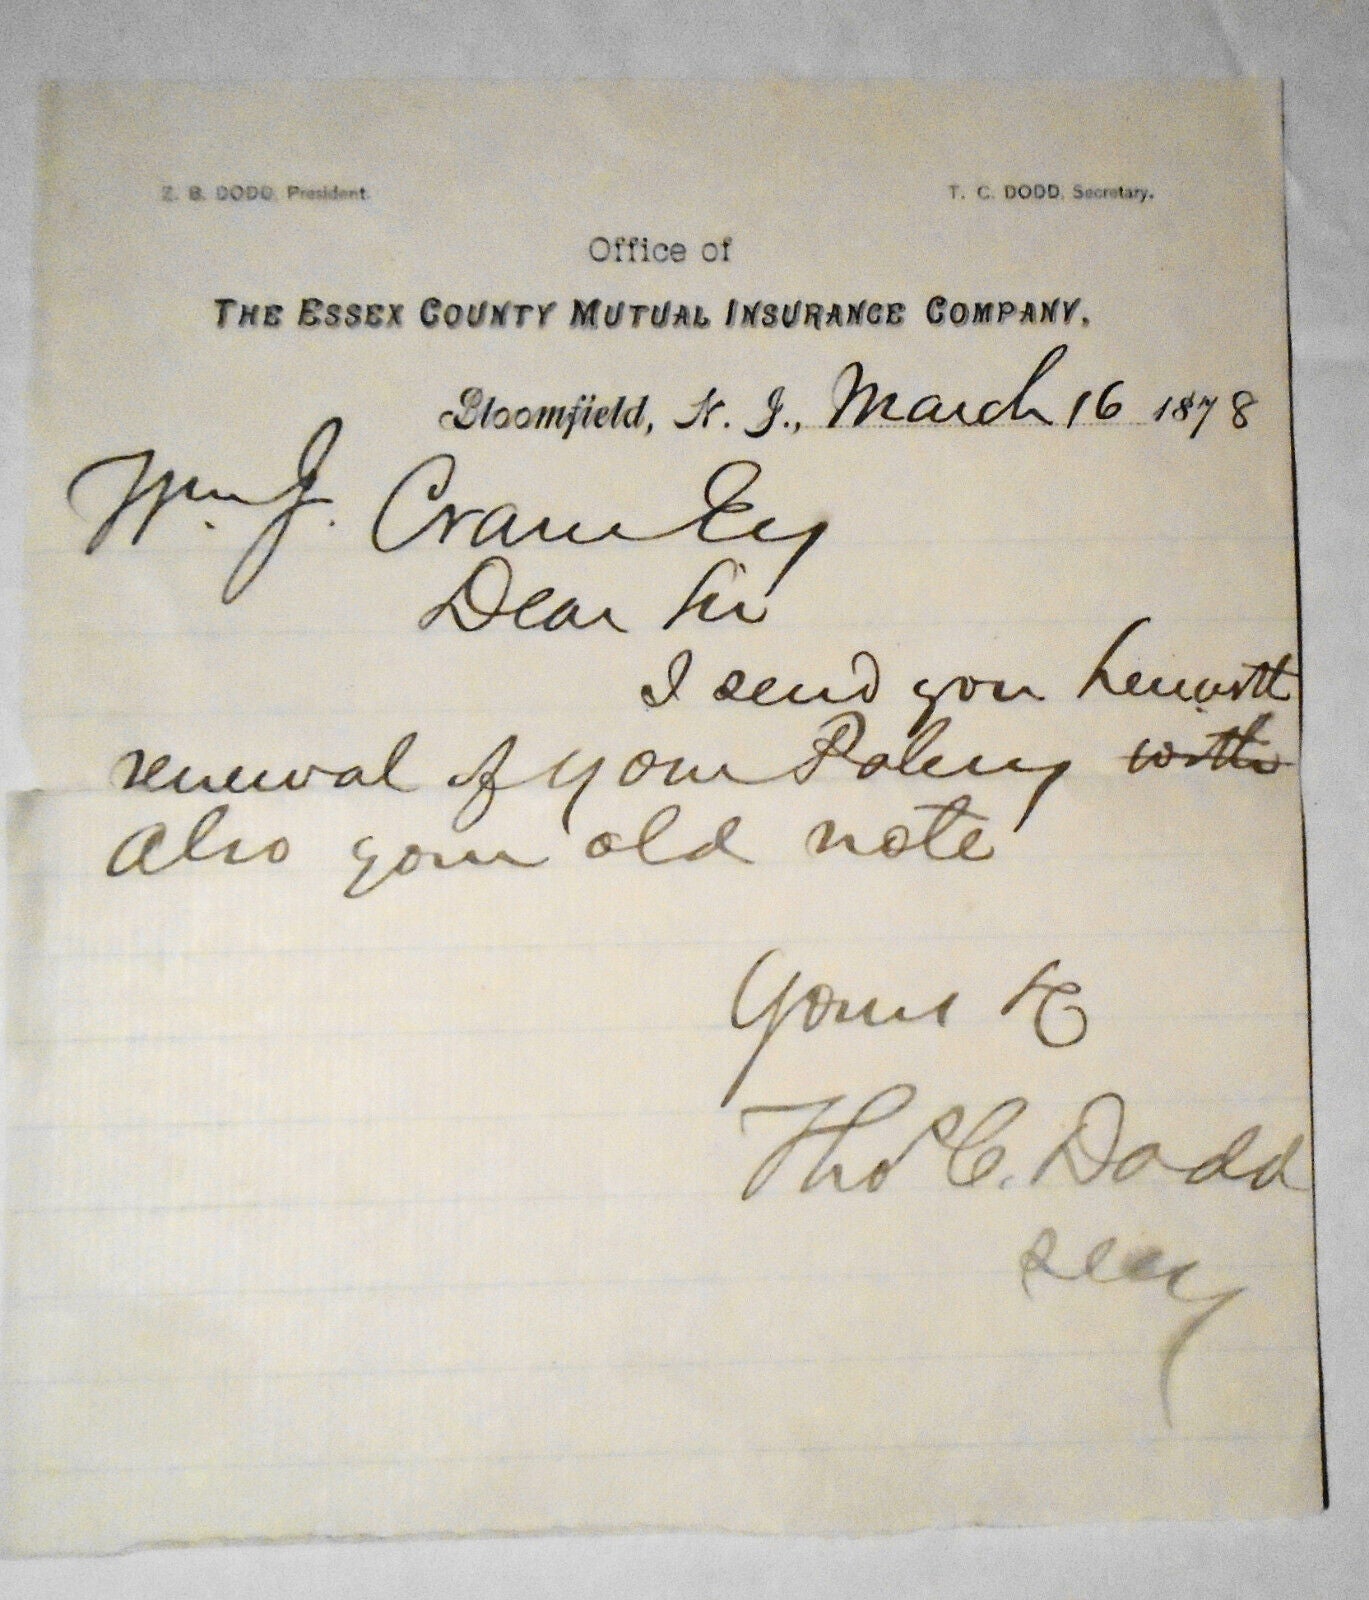 Z. B. DODD, President.
T. C. DODD, Secretary.
Office of
THE ESSEX COUNTY MUTUAL INSURANCE COMPANY,
Bloomfield, N. J., March 16 1878
Wm. J.
Dear Sir
I send you herewith
renewal of your Policy with
also your old note
Yours &c
Thos C. Dodd
Secy